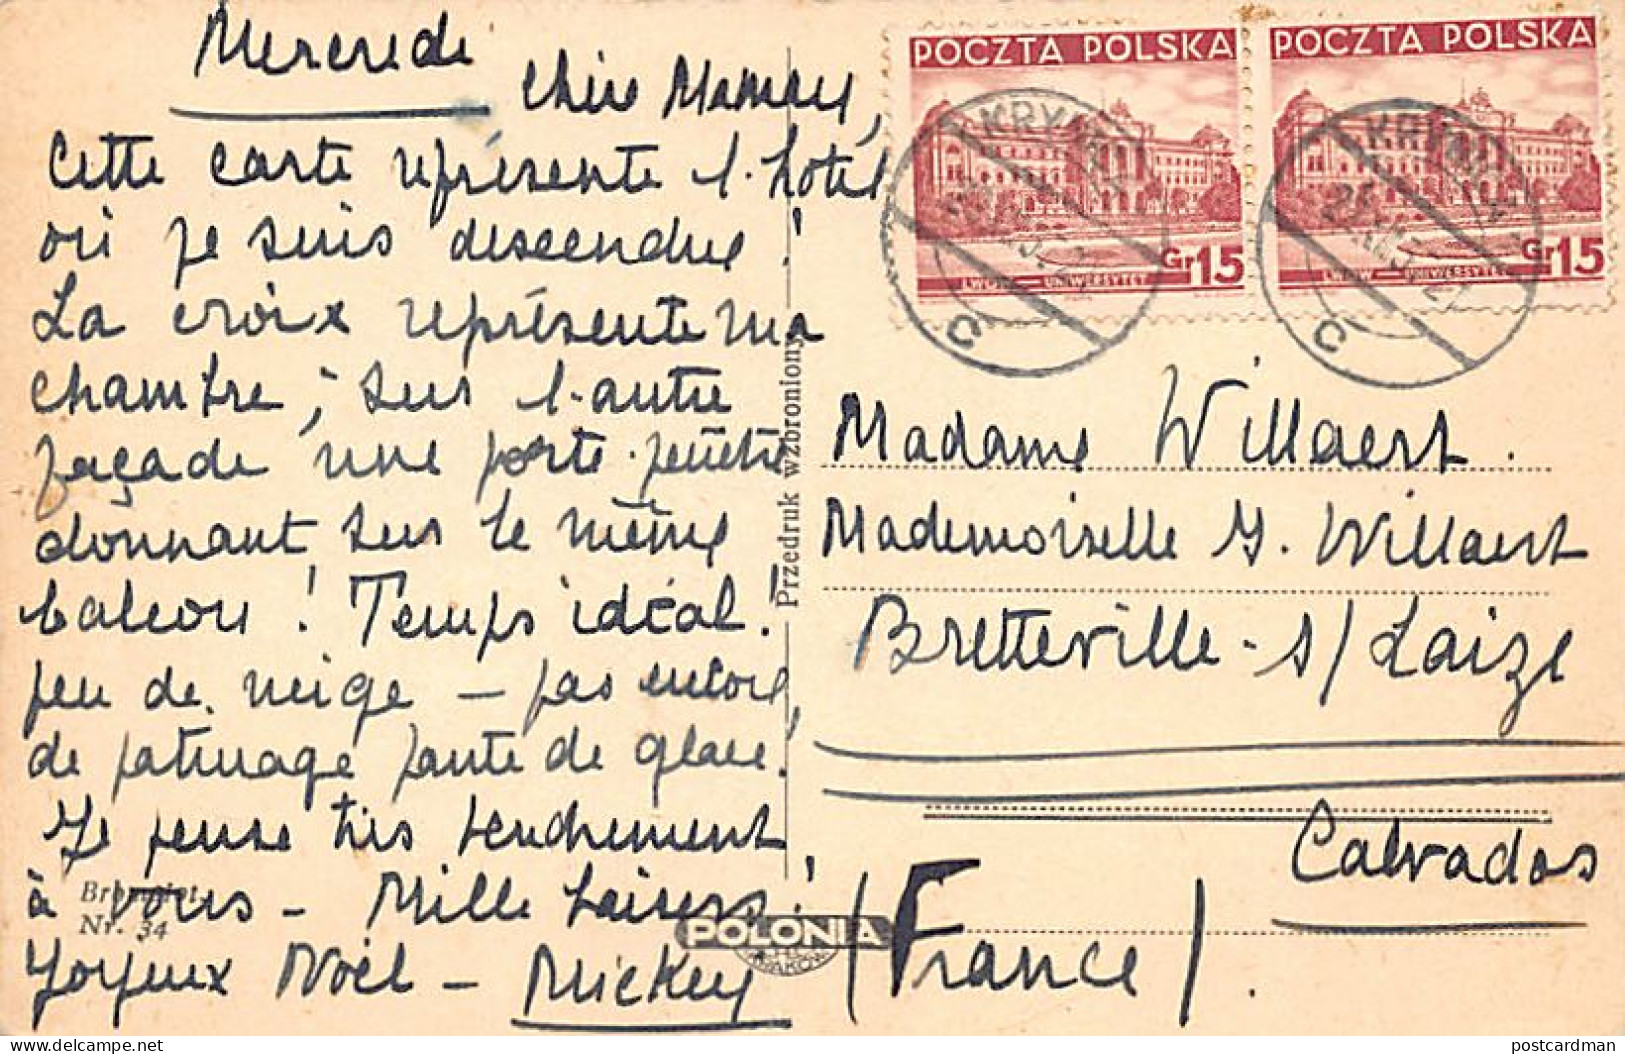 Mercredi
Chère Mamay,
Cette carte représente l'hôtel
où je suis descendue !
La croix représente ma
chambre ; sur l'autre
façade une porte-fenêtre
donnant sur le même
balcon ! Temps idéal !
peu de neige — pas encore
de patinage faute de glace.
Je pense très tendrement
à vous — Mille baisers !
Joyeux Noël — Mickey
Nr. 34
Przedruk wzbroniony
POLONIA
KRAKÓW
POCZTA POLSKA
LWÓW — UNIWERSYTET
Gr 15
POCZTA POLSKA
LWÓW — UNIWERSYTET
Gr 15
C
C
Madame Willaert.
Mademoiselle Y. Willaert
Bretteville-s/Laize
Calvados
(France).
delcampe.net
postcardman